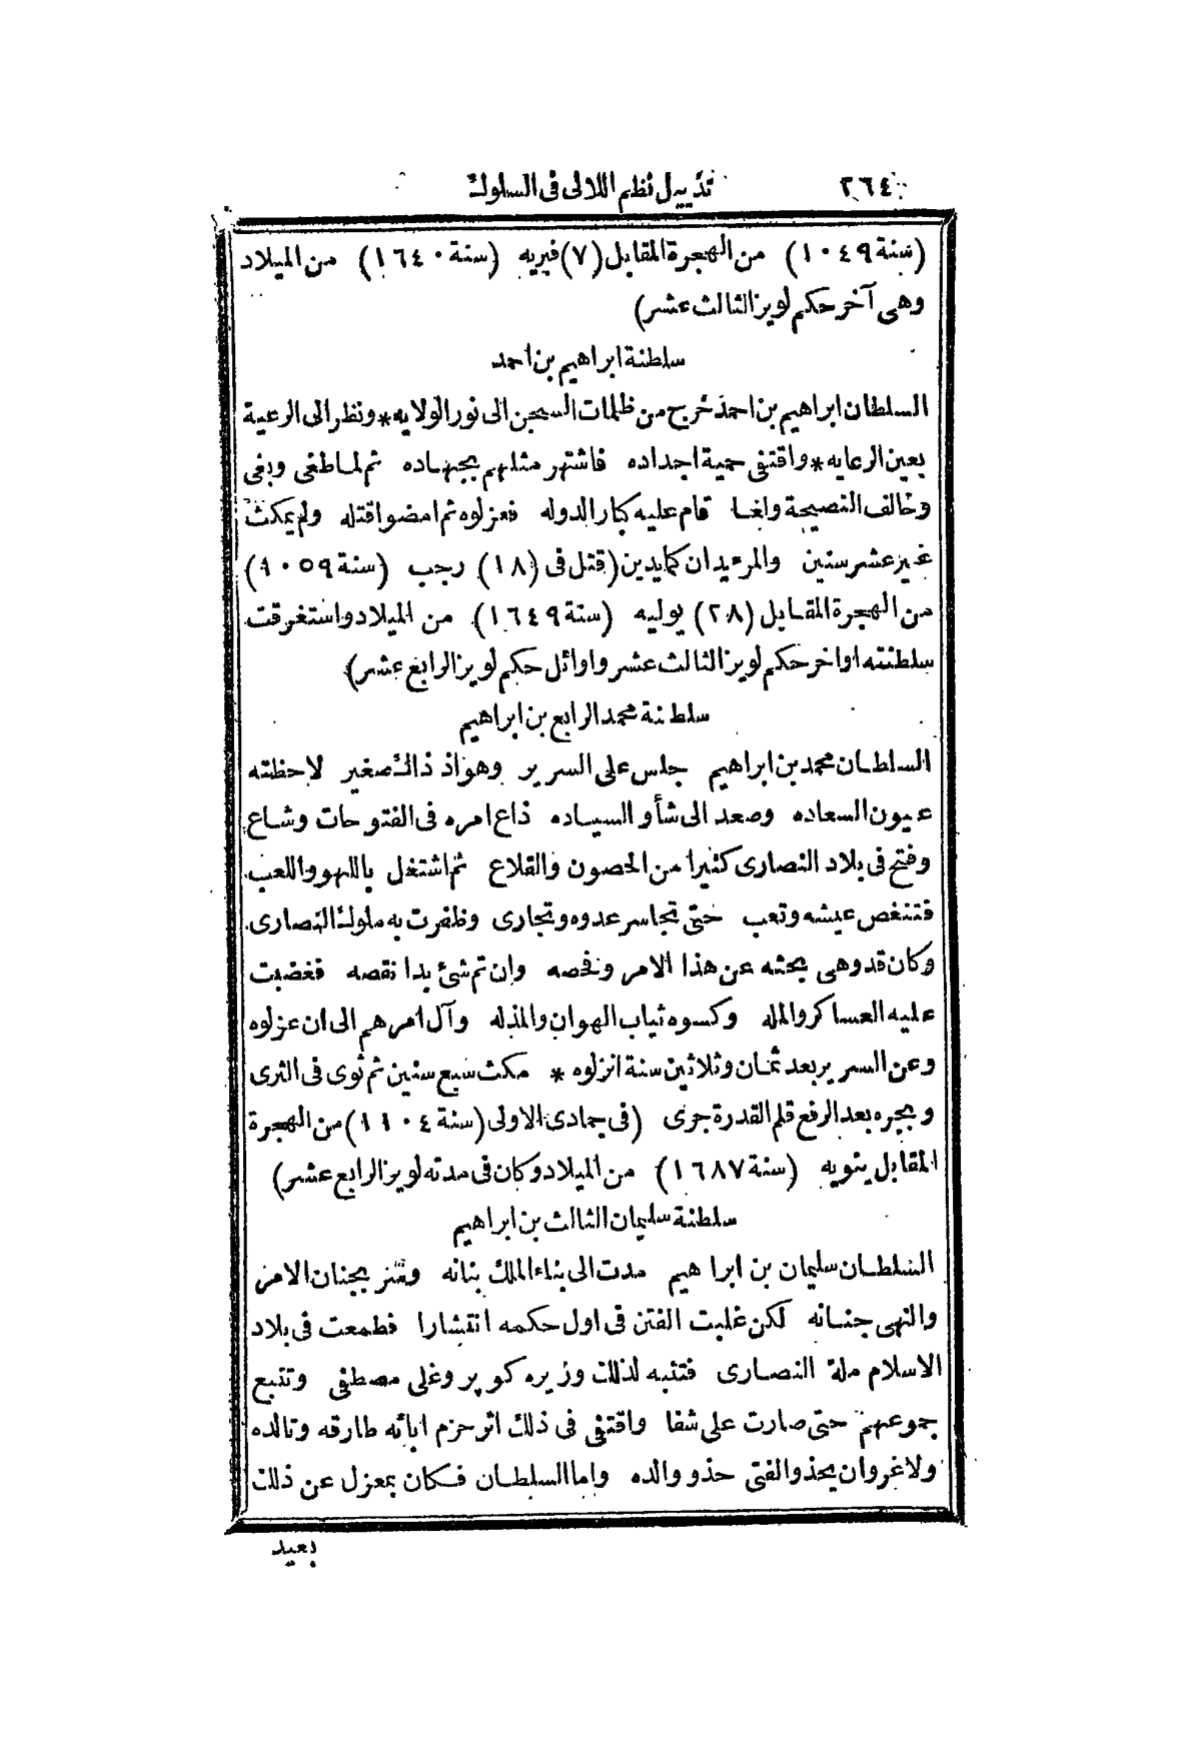 ٢٦٤ تذييل نظم اللالى فى السلوك
(سنة ١٠٤٩) من الهجرة المقابل (٧) فبريه (سنة ١٦٤٠) من الميلاد
وهى آخر حكم لويز الثالث عشر)
سلطنة ابراهيم بن احمد
السلطان ابراهيم بن احمد خرج من ظلمات السجن الى نور الولايه * ونظر الى الرعية
بعين الرعايه * واقتفى حمية اجداده فاشتهر مثلهم بجهاده ثم لما طغى وبغى
وخالف النصيحة ولغا قام عليه كبار الدوله فعزلوه ثم امضوا قتله ولم يمكث
غير عشر سنين والمرء يدان كما يدين (قتل فى (١٨) رجب (سنة ١٠٥٩)
من الهجرة المقابل (٢٨) يوليه (سنة ١٦٤٩) من الميلاد واستغرقت
سلطنته اواخر حكم لويز الثالث عشر واوائل حكم لويز الرابع عشر)
سلطنة محمد الرابع بن ابراهيم
السلطان محمد بن ابراهيم جلس على السرير وهو اذ ذاك صغير لاحظته
عيون السعاده وصعد الى شأو السياده ذاع امره فى الفتوحات وشاع
وفتح فى بلاد النصارى كثيرا من الحصون والقلاع ثم اشتغل باللهو واللعب
فتنغص عيشه وتعب حتى تجاسر عدوه وتجارى وظفرت به ملوك النصارى
وكان قد وهى بحثه عن هذا الامر وفحصه وان تم شئ بدا نقصه فغضبت
عليه العساكر والمله وكسوه ثياب الهوان والمذله وآل امرهم الى ان عزلوه
وعن السرير بعد ثمان وثلاثين سنة انزلوه * مكث سبع سنين ثم ثوى فى الثرى
وبجره بعد الرفع قلم القدرة جرى (فى جمادى الاولى (سنة ١١٠٤) من الهجرة
المقابل ينويه (سنة ١٦٨٧) من الميلاد وكان فى مدته لويز الرابع عشر)
سلطنة سليمان الثالث بن ابراهيم
السلطان سليمان بن ابراهيم مدت الى بناء الملك بنانه بجنان الامر
والنهى جنانه لكن غلبت الفتن فى اول حكمه انتشارا فطمعت فى بلاد
الاسلام ملة النصارى فتنبه لذلك وزيره كوپروغلى مصطفى وتتبع
جموعهم حتى صارت على شفا واقتفى فى ذلك اثر حزم ابائه طارقه وتالده
ولا غرو ان يحذو الفتى حذو والده واما السلطان فكان بمعزل عن ذلك
بعيد